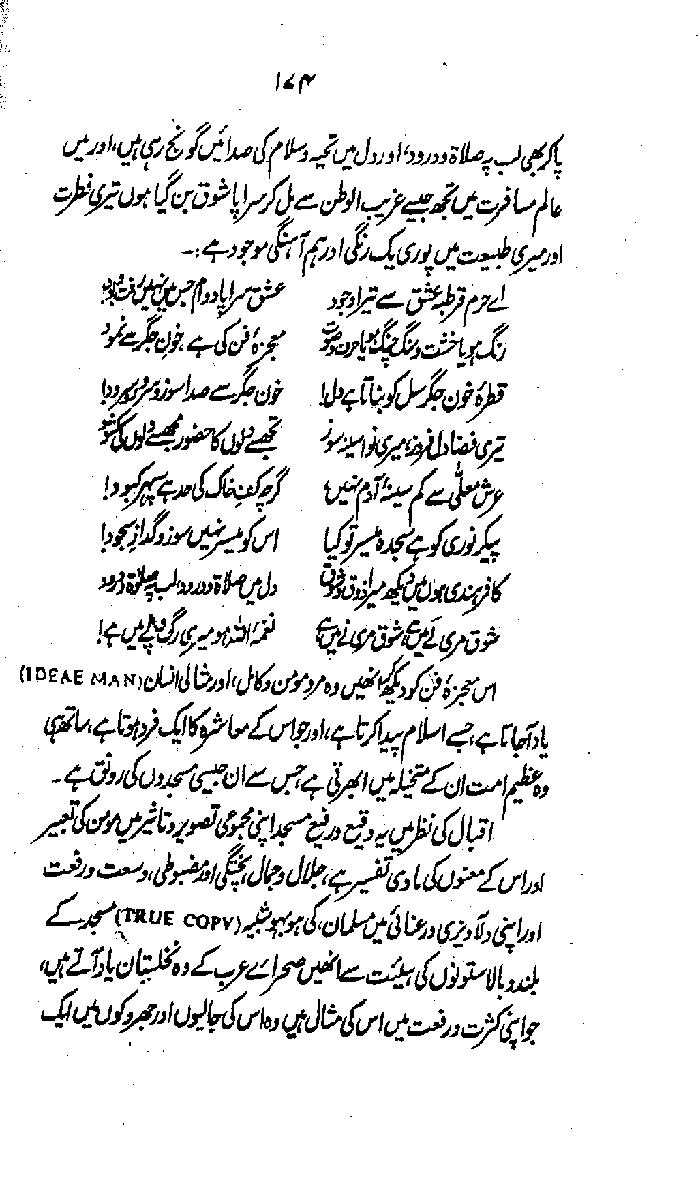 ۱۷۴
پا کر بھی لب پہ صلاۃ و درود، اور دل میں تحیہ و سلام کی صدائیں گونج رہی ہیں، اور میں
عالم مسافرت میں تجھ جیسے غریب الوطن سے مل کر سراپا شوق بن گیا ہوں تیری فطرت
اور میری طبیعت میں پوری یک رنگی اور ہم آہنگی موجود ہے :۔
اے حرم قرطبہ عشق سے تیرا وجود عشق سراپا دوام جس میں نہیں رفت و بود
رنگ ہو یا خشت و سنگ چنگ ہو یا حرف و صوت معجزۂ فن کی ہے خون جگر سے نمود
قطرۂ خون جگر سل کو بناتا ہے دل! خون جگر سے صدا سوز و سرور و سرود!
تیری فضا دل فروز میری نوا سینہ سوز تجھ سے دلوں کا حضور مجھ سے دلوں کی کشود
عرش معلّٰی سے کم سینۂ آدم نہیں گرچہ کف خاک کی حد ہے سپہر کبود!
پیکر نوری کو ہے سجدہ میسر تو کیا اس کو میسر نہیں سوز و گداز سجود!
کافر ہندی ہوں میں دیکھ میرا ذوق و شوق دل میں صلاۃ و درود لب پہ صلوٰۃ و درود
شوق مری لَے میں ہے شوق مری نے میں ہے نغمۂ اللہ ہو میری رگ و پے میں ہے!
اس معجزۂ فن کو دیکھ کر انھیں وہ مرد مومن و کامل، اور مثالی انسان (IDEAE MAN)
یاد آجاتا ہے، جسے اسلام پیدا کرتا ہے، اور جو اس کے معاشرہ کا ایک فرد ہوتا ہے، ساتھ ہی
وہ عظیم امت ان کے متخیلہ میں ابھرتی ہے، جس سے ان جیسی مسجدوں کی رونق ہے۔
اقبال کی نظر میں یہ وقیع و رفیع مسجد اپنی مجموعی تصویر و تاثیر میں مومن کی تعبیر
اور اس کے معنوں کی مادی تفسیر ہے، جلال و جمال، پختگی اور مضبوطی، وسعت و رفعت
اور اپنی دلآویزی و رعنائی میں مسلمان، کی ہو بہو شبیہ (TRUE COPY) مسجد کے
بلند و بالا ستونوں کی ہیئت سے انھیں صحرائے عرب کے وہ نخلستان یاد آتے ہیں،
جو اپنی کثرت و رفعت میں اس کی مثال ہیں وہ اس کی جالیوں اور جھروکوں میں ایک